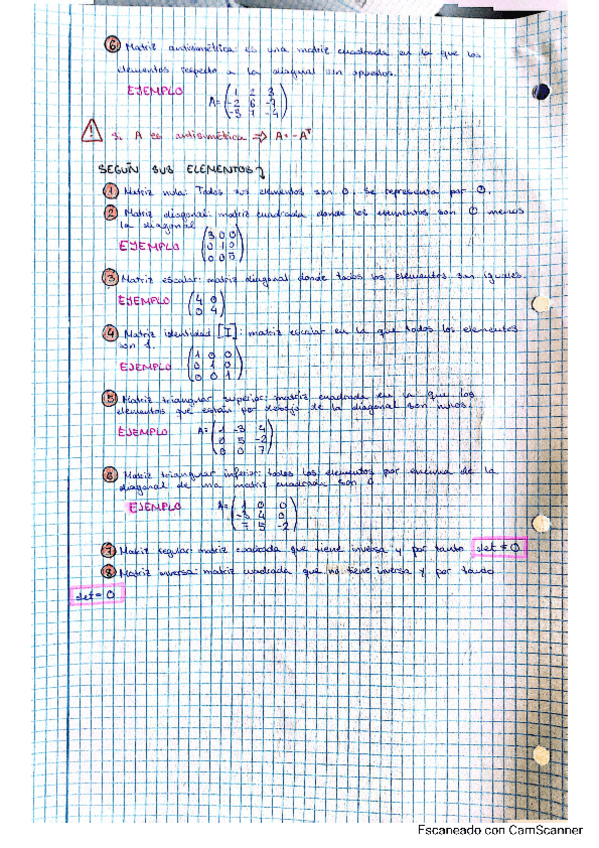 ⑥ Matriz antisimétrica es una matriz cuadrada en la que los
elementos respecto a la diagonal son opuestos.
EJEMPLO
A= (1 2 3
-2 6 -7
-3 7 -4)
⚠ Si A es antisimétrica ⇒ A=-Aᵀ
SEGÚN SUS ELEMENTOS
① Matriz nula: Todos sus elementos son 0. Se representa por 0.
② Matriz diagonal: matriz cuadrada donde los elementos son 0 menos
la diagonal
EJEMPLO (3 0 0
0 1 0
0 0 5)
③ Matriz escalar: matriz diagonal donde todos los elementos son iguales.
EJEMPLO (4 0
0 4)
④ Matriz identidad [I]: matriz escalar en la que todos los elementos
son 1.
EJEMPLO (1 0 0
0 1 0
0 0 1)
⑤ Matriz triangular superior: matriz cuadrada en la que los
elementos que están por debajo de la diagonal son nulos.
EJEMPLO A= (1 -3 4
0 5 -2
0 0 7)
⑥ Matriz triangular inferior: todos los elementos por encima de la
diagonal de una matriz cuadrada son 0
EJEMPLO A= (1 0 0
-3 4 0
7 5 -2)
⑦ Matriz regular: matriz cuadrada que tiene inversa y por tanto det ≠ 0
⑧ Matriz inversa: matriz cuadrada que no tiene inversa y por tanto
det = 0
Escaneado con CamScanner